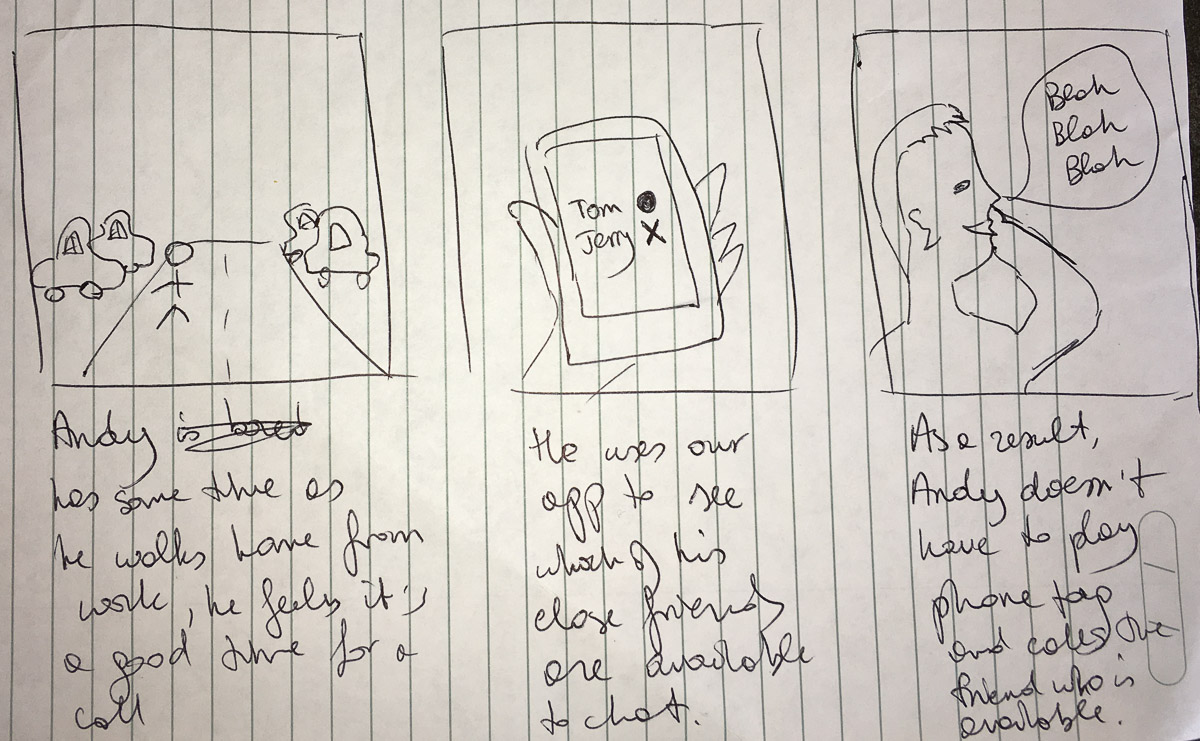 Tom
Jerry X
Blah
Blah
Blah
Andy is bored
has some time as
he walks home from
work, he feels it's
a good time for a
call
He uses our
app to see
which of his
close friends
are available
to chat.
As a result,
Andy doesn't
have to play
phone tag
and calls the
friend who is
available.